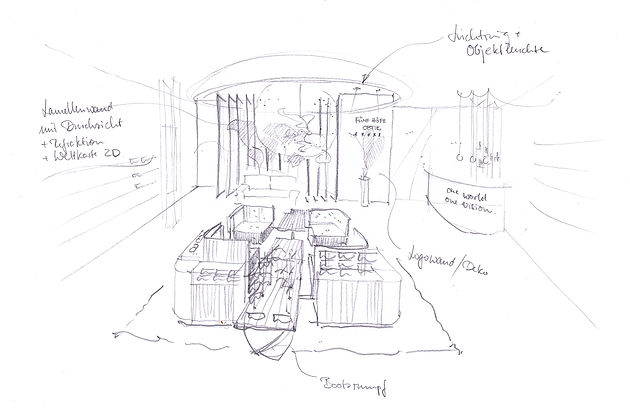 Lichtring +
Objektleuchte
Lamellenwand
mit Durchsicht
+ Projektion
+ Weltkarte 2D
FÜNF HÖFE
OPTIK
one world
one vision.
Logowand/Deko
Bootsrumpf